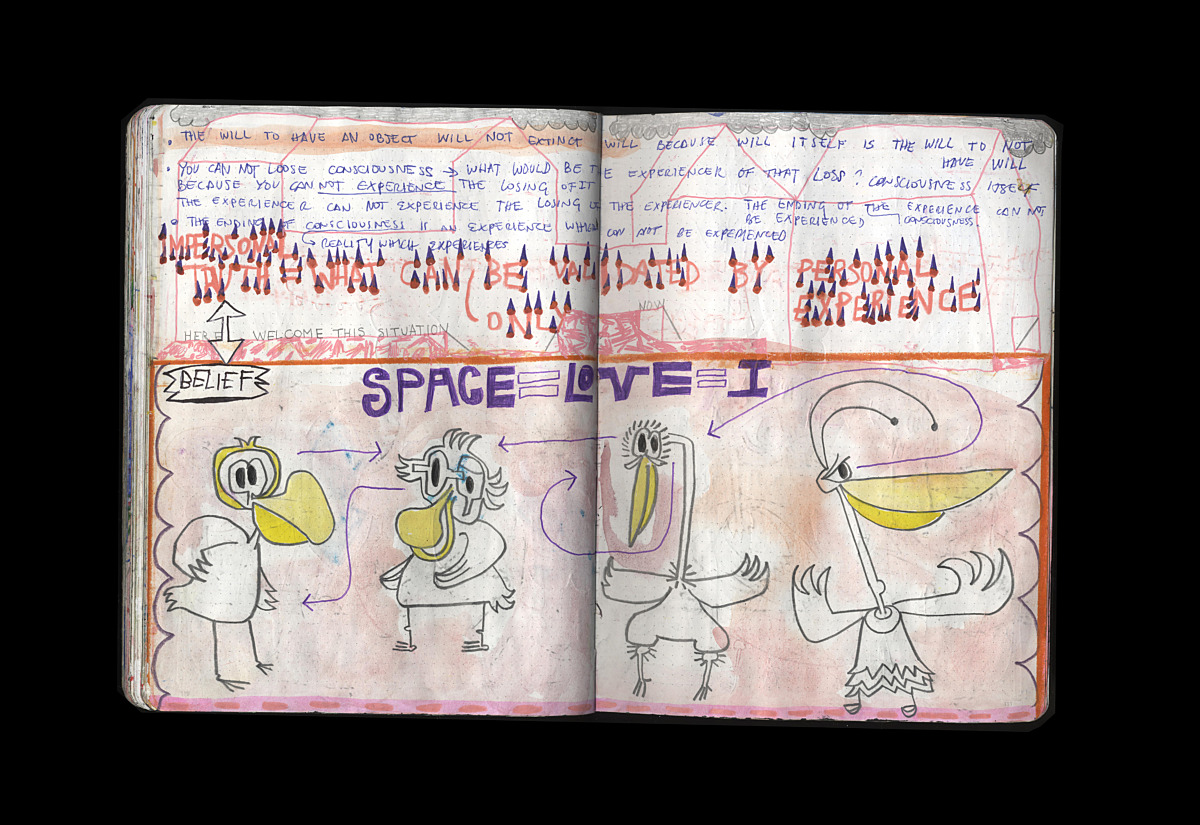 • THE WILL TO HAVE AN OBJECT WILL NOT EXTINCT WILL BECAUSE WILL ITSELF IS THE WILL TO NOT
HAVE WILL
• YOU CAN NOT LOOSE CONSCIOUSNESS → WHAT WOULD BE THE EXPERIENCER OF THAT LOSS? CONSCIOUSNESS ITSELF
BECAUSE YOU CAN NOT EXPERIENCE THE LOSING OF IT
THE EXPERIENCER CAN NOT EXPERIENCE THE LOSING OF THE EXPERIENCER. THE ENDING OF THE EXPERIENCE CAN NOT
BE EXPERIENCED CONSCIOUSNESS
• THE ENDING OF CONSCIOUSNESS IS AN EXPERIENCE WHICH CAN NOT BE EXPERIENCED
REALITY WHICH EXPERIENCES
IMPERSONAL
TRUTH = WHAT CAN BE VALIDATED BY PERSONAL
ONLY EXPERIENCE
NOW
HERE WELCOME THIS SITUATION
BELIEF
SPACE=LOVE=I